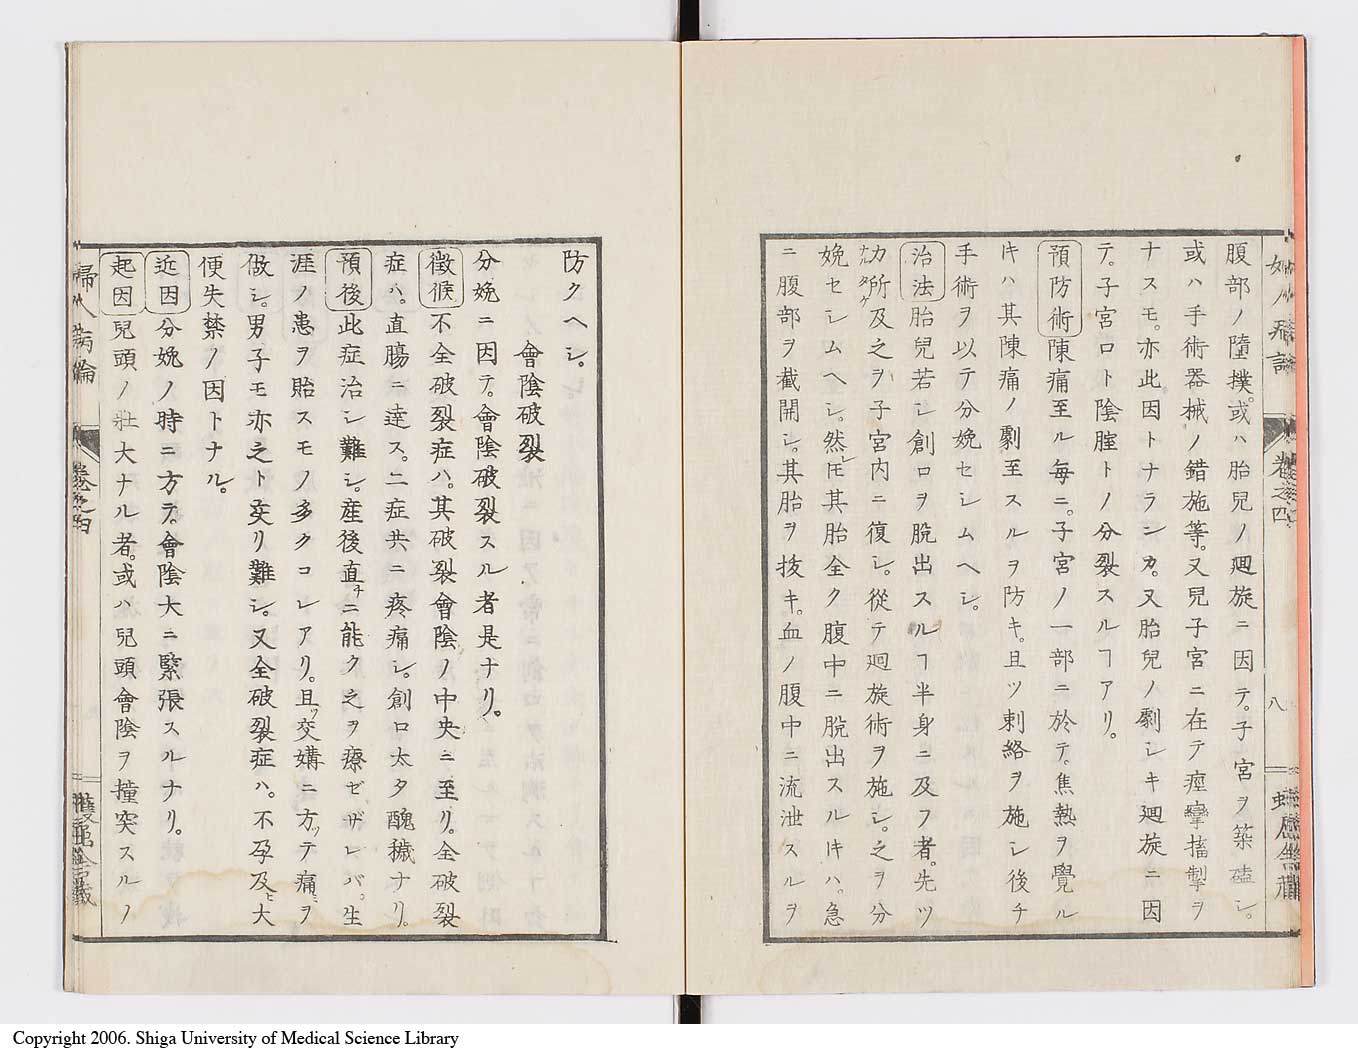 腹部ノ墮撲。或ハ胎兒ノ廻旋ニ因テ。子宮ヲ築磕シ。
或ハ手術器械ノ錯施等。又兒子宮ニ在テ痙攣搐掣ヲ
ナスモ。亦此因トナラン歟。又胎兒ノ劇シキ廻旋ニ因
テ。子宮口ト陰腟トノ分裂スルヿアリ。
預防術陳痛至ル毎ニ。子宮ノ一部ニ於テ。焦熱ヲ覺ル
キハ其陳痛ノ劇至スルヲ防キ。且ツ刺絡ヲ施シ後チ
手術ヲ以テ分娩セシムヘシ。
治法胎兒若シ創口ヲ脱出スルヿ半身ニ及フ者。先ツ
力所及之ヲ子宮内ニ復シ。從テ廻旋術ヲ施シ。之ヲ分
娩セシムヘシ。然レ𪜈其胎全ク腹中ニ脱出スルキハ。急
ニ腹部ヲ截開シ。其胎ヲ抜キ。血ノ腹中ニ流泄スルヲ
八
防クヘシ。
會陰破裂
分娩ニ因テ。會陰破裂スル者是ナリ。
徴候不全破裂症ハ。其破裂會陰ノ中央ニ至リ。全破裂
症ハ。直腸ニ達ス。二症共ニ疼痛シ。創口太タ醜穢ナリ。
預後此症治シ難シ。産後直チニ能ク之ヲ療ゼザレバ。生
涯ノ患ヲ貽スモノ多クコレアリ。且ツ交媾ニ方ツテ痛ミヲ
做シ。男子モ亦之ト交リ難シ。又全破裂症ハ。不孕及ヒ大
便失禁ノ因トナル。
近因分娩ノ時ニ方テ。會陰大ニ緊張スルナリ。
起因兒頭ノ壯大ナル者。或ハ兒頭會陰ヲ撞突スルノ
婦人病論
卷之四
Copyright 2006. Shiga University of Medical Science Library